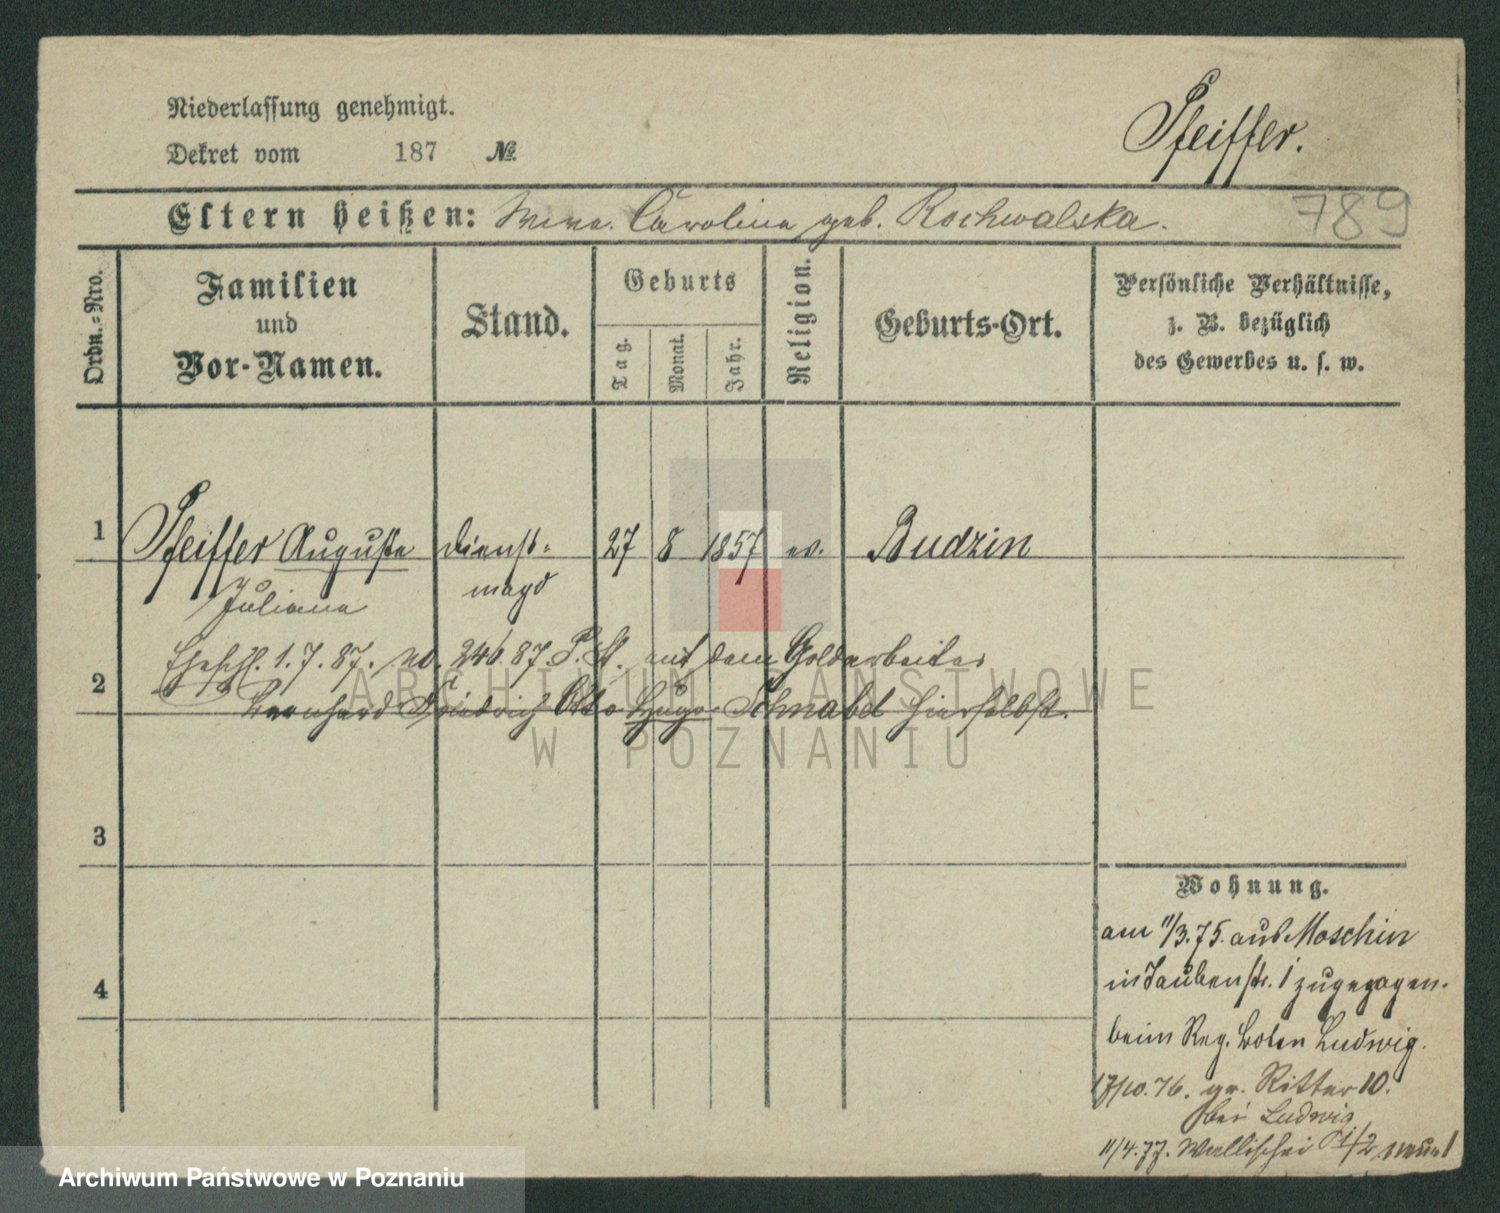 Niederlassung genehmigt.
Dekret vom 187 №
Pfeiffer.
Eltern heißen: Carolina geb. Rochwalska.
789
Ordn.-Nro.
Familien
und
Vor-Namen.
Stand.
Geburts
Tag.
Monat.
Jahr.
Religion.
Geburts-Ort.
Persönliche Verhältnisse,
z. B. bezüglich
des Gewerbes u. s. w.
1 Pfeiffer Auguste Dienst- 27 8 1857 ev. Budzin
Juliana magd
Eheschl. 1.7.87. No. 246.87 P. St. mit dem Goldarbeiter
2
Bernhard Friedrich Otto Hugo Schnabel hierselbst.
3
4
Wohnung.
am 11/3.75. aus Moschin
in Taubenstr. 1 zugezogen.
beim Reg. Boten Ludwig.
17/10.76. gr. Ritter 10.
bei Ludwig
11/4.77. Wallischei 1/2
ARCHIWUM PAŃSTWOWE
W POZNANIU
Archiwum Państwowe w Poznaniu